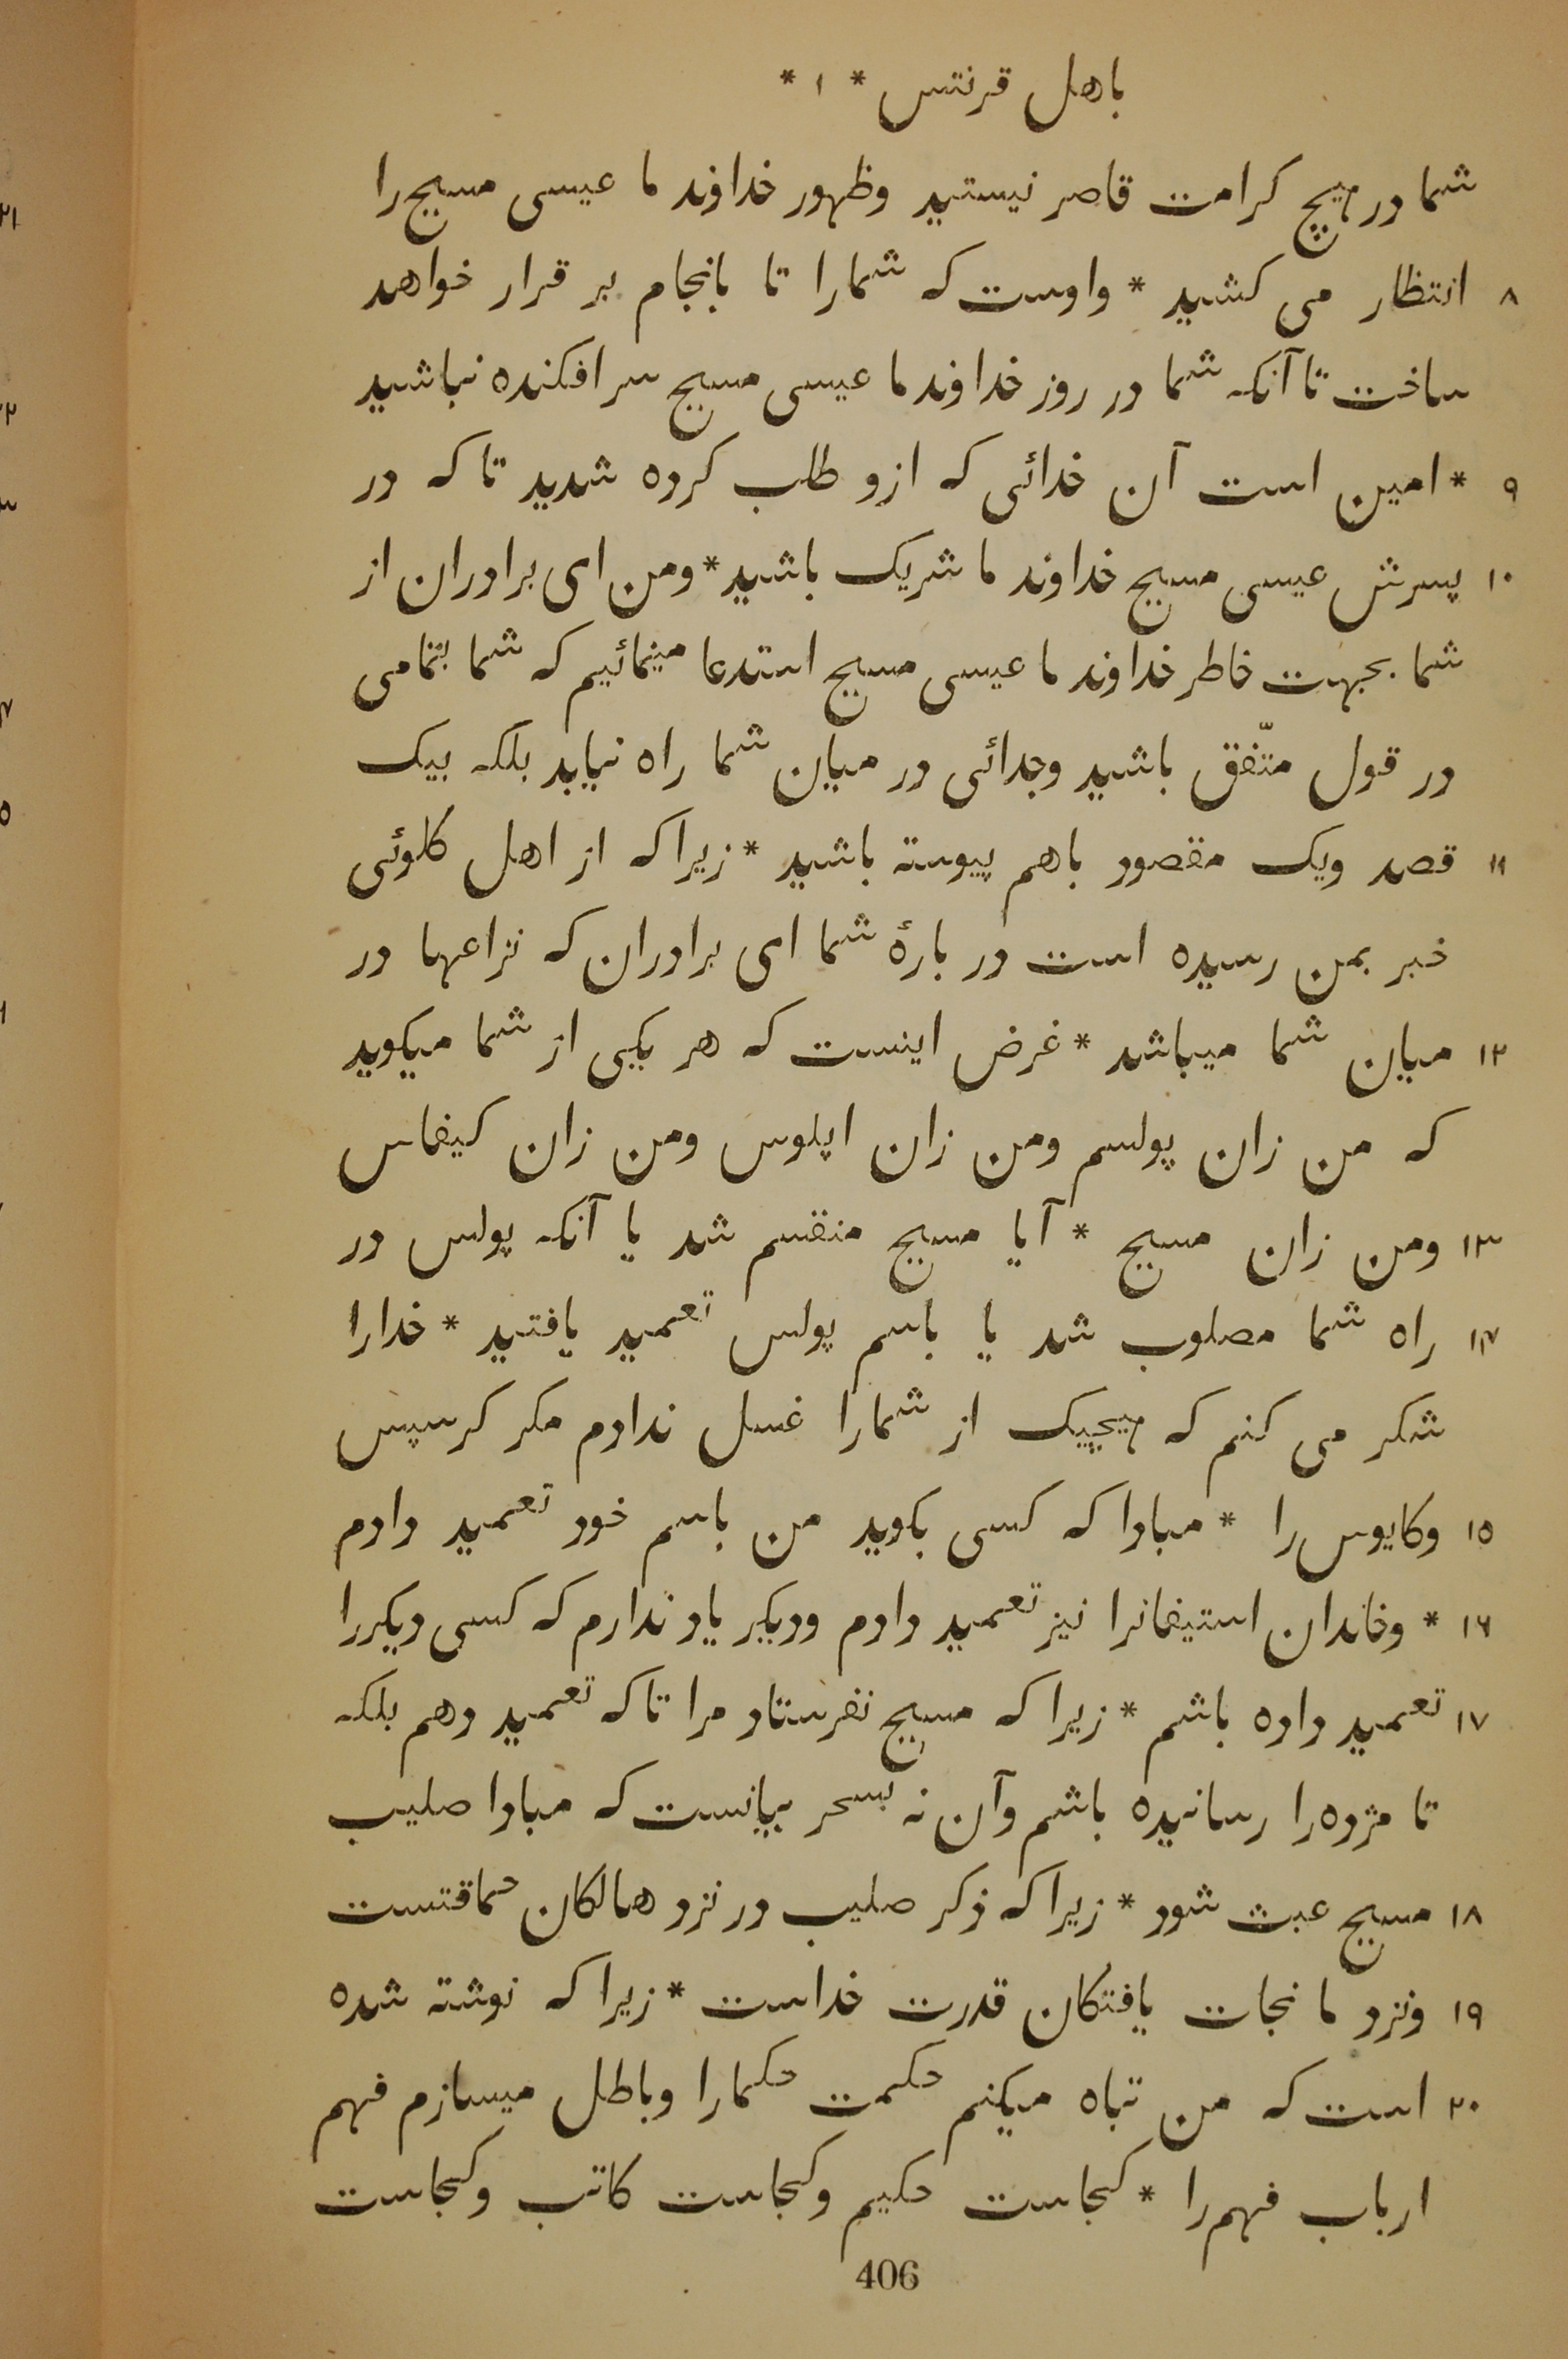 باهل قرنتس * ۱ *
شما در هیچ کرامت قاصر نیستید وظهور خداوند ما عیسی مسیح را
۸ انتظار می کشید * واوست که شمارا تا بانجام بر قرار خواهد
ساخت تا آنکه شما در روز خداوند ما عیسی مسیح سر افکنده نباشید
۹ * امین است آن خدائی که ازو طلب کرده شدید تا که در
۱۰ پسرش عیسی مسیح خداوند ما شریک باشید * ومن ای برادران از
شما بجهت خاطر خداوند ما عیسی مسیح استدعا مینمائیم که شما بتمامی
در قول متّفق باشید وجدائی در میان شما راه نیابد بلکه بیک
۱۱ قصد ویک مقصود باهم پیوسته باشید * زیرا که از اهل کلوئی
خبر بمن رسیده است در بارهٔ شما ای برادران که نزاعها در
۱۲ میان شما میباشد * غرض اینست که هر یکی از شما میکوید
که من زان پولسم ومن زان اپلوس ومن زان کیفاس
۱۳ ومن زان مسیح * آیا مسیح منقسم شد یا آنکه پولس در
۱۴ راه شما مصلوب شد یا باسم پولس تعمید یافتید * خدارا
شکر می کنم که هیچیک از شمارا غسل ندادم مکر کرسپس
۱۵ وکایوس را * مبادا که کسی بکوید من باسم خود تعمید دادم
۱۶ * وخاندان استیفانرا نیز تعمید دادم ودیکر یاد ندارم که کسی دیکررا
۱۷ تعمید داده باشم * زیرا که مسیح نفرستاد مرا تا که تعمید دهم بلکه
تا مژده را رسانیده باشم وآن نه بسحر بیانست که مبادا صلیب
۱۸ مسیح عبث شود * زیرا که ذکر صلیب در نزد هالکان حماقتست
۱۹ ونزد ما نجات یافتکان قدرت خداست * زیرا که نوشته شده
۲۰ است که من تباه میکنم حکمت حکمارا وباطل میسازم فهم
ارباب فهم را * کجاست حکیم وکجاست کاتب وکجاست
406